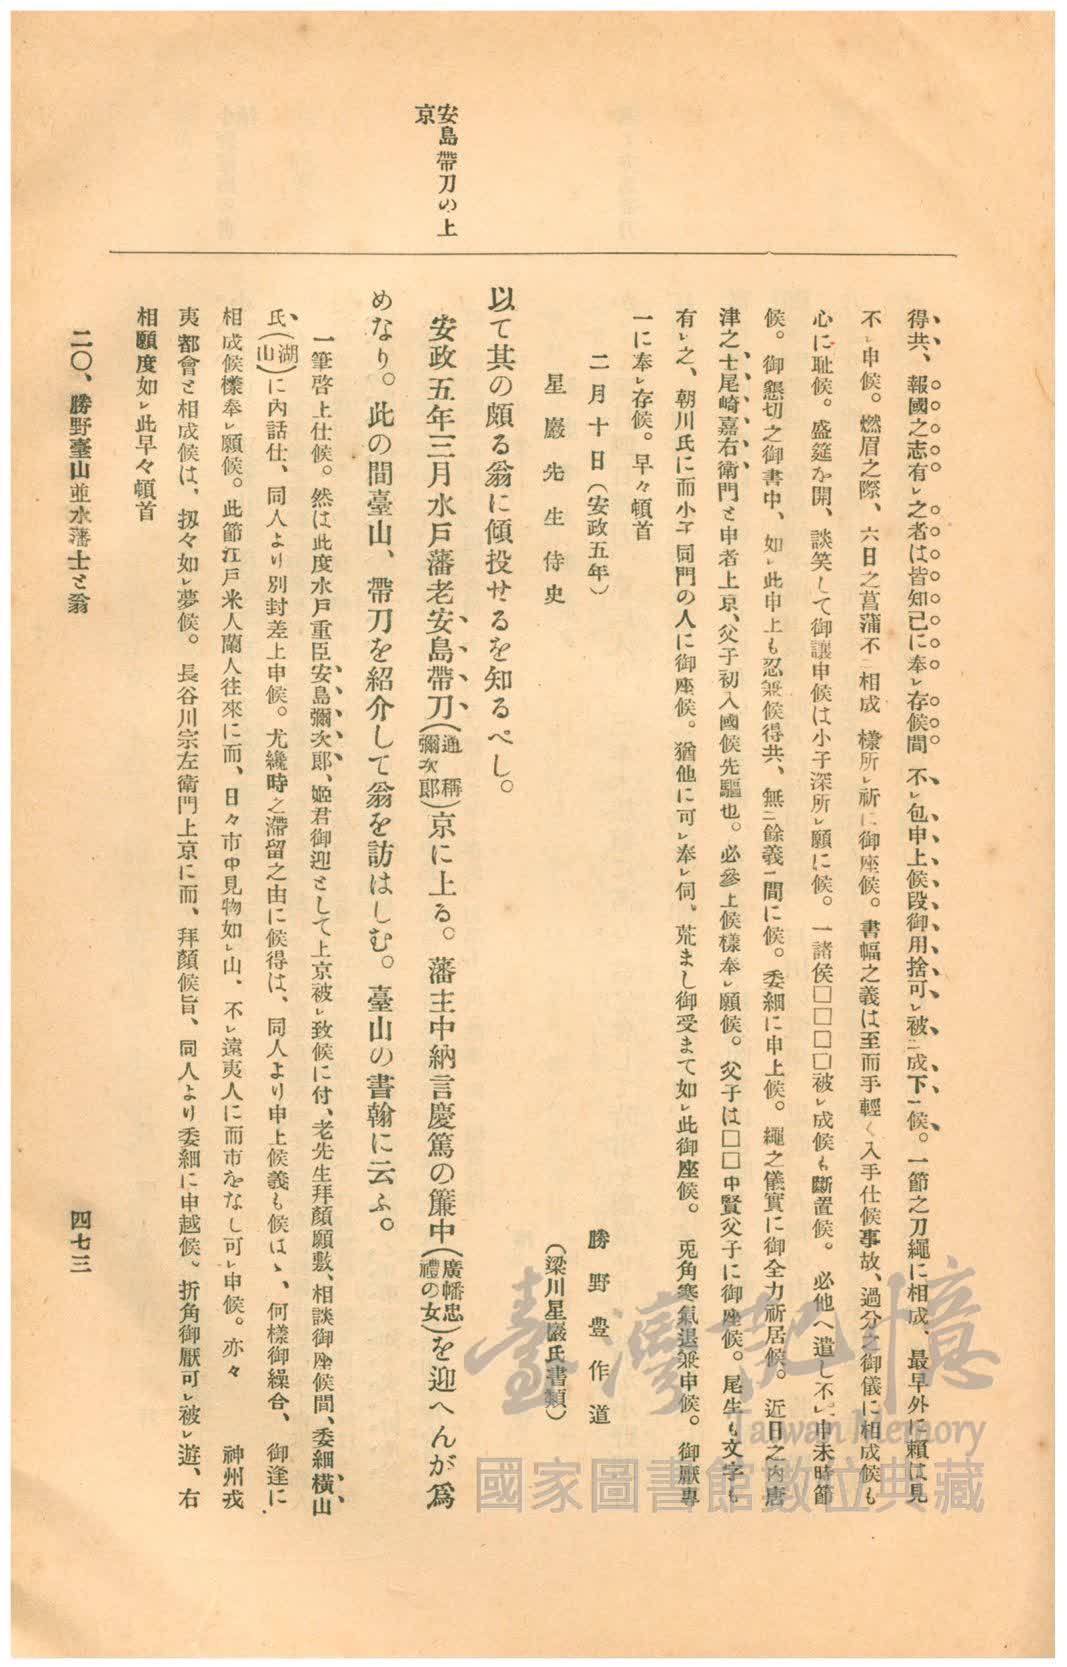 安島帶刀の上
京
得共、報國之志有レ之者は皆知己に奉レ存候間 不レ包申上候段御用捨可レ被二成下一候。一節之刀繩に相成、最早外に賴は見
不レ申候。燃眉之際、六日之菖蒲不二相成 樣所レ祈に御座候。書幅之義は至而手輕く入手仕候事故、過分之御儀に相成候も
心に耻候。盛筵を開、談笑して御讓申候は小子深所レ願に候。一諸侯□□□□被レ成候も斷置候。必他へ遣し不レ申未時節
候。御懇切之御書中、如レ此申上も忍兼候得共、無二餘義一間に候。委細に申上候。繩之儀實に御全力祈居候。近日之内唐
津之士尾崎嘉右衛門と申者上京、父子初入國候先驅也。必參上候樣奉レ願候。父子は□□中賢父子に御座候。尾生も文字も
有レ之、朝川氏に而小子同門の人に御座候。猶他に可レ奉レ伺、荒まし御受まて如レ此御座候。 兎角寒氣退兼申候。御厭專
一に奉レ存候。早々頓首
二月十日（安政五年）
勝野豊作道
星巖先生侍史
（梁川星巖氏書類）
以て其の頗る翁に傾投せるを知るべし。
安政五年三月水戸藩老安島帶刀（通稱彌次郎）京に上る。藩主中納言慶篤の簾中（廣幡忠禮の女）を迎へんが爲
めなり。此の間臺山、帶刀を紹介して翁を訪はしむ。臺山の書翰に云ふ。
一筆啓上仕候。然は此度水戸重臣安島彌次郎、姬君御迎として上京被レ致候に付、老先生拜顏願敷、相談御座候間、委細橫山
氏（湖山）に内話仕、同人より別封差上申候。尤纔時之滯留之由に候得は、同人より申上候義も候はゝ、何樣御繰合、御逢に
相成候樣奉レ願候。此節江戸米人蘭人往來に而、日々市中見物如レ山、不レ遠夷人に而市をなし可レ申候。亦々 神州戎
夷都會と相成候は、扨々如レ夢候。長谷川宗左衛門上京に而、拜顏候旨、同人より委細に申越候。折角御厭可レ被レ遊、右
相願度如レ此早々頓首
二〇、勝野臺山並水藩士と翁
四七三
臺灣記憶
Taiwan Memory
國家圖書館數位典藏